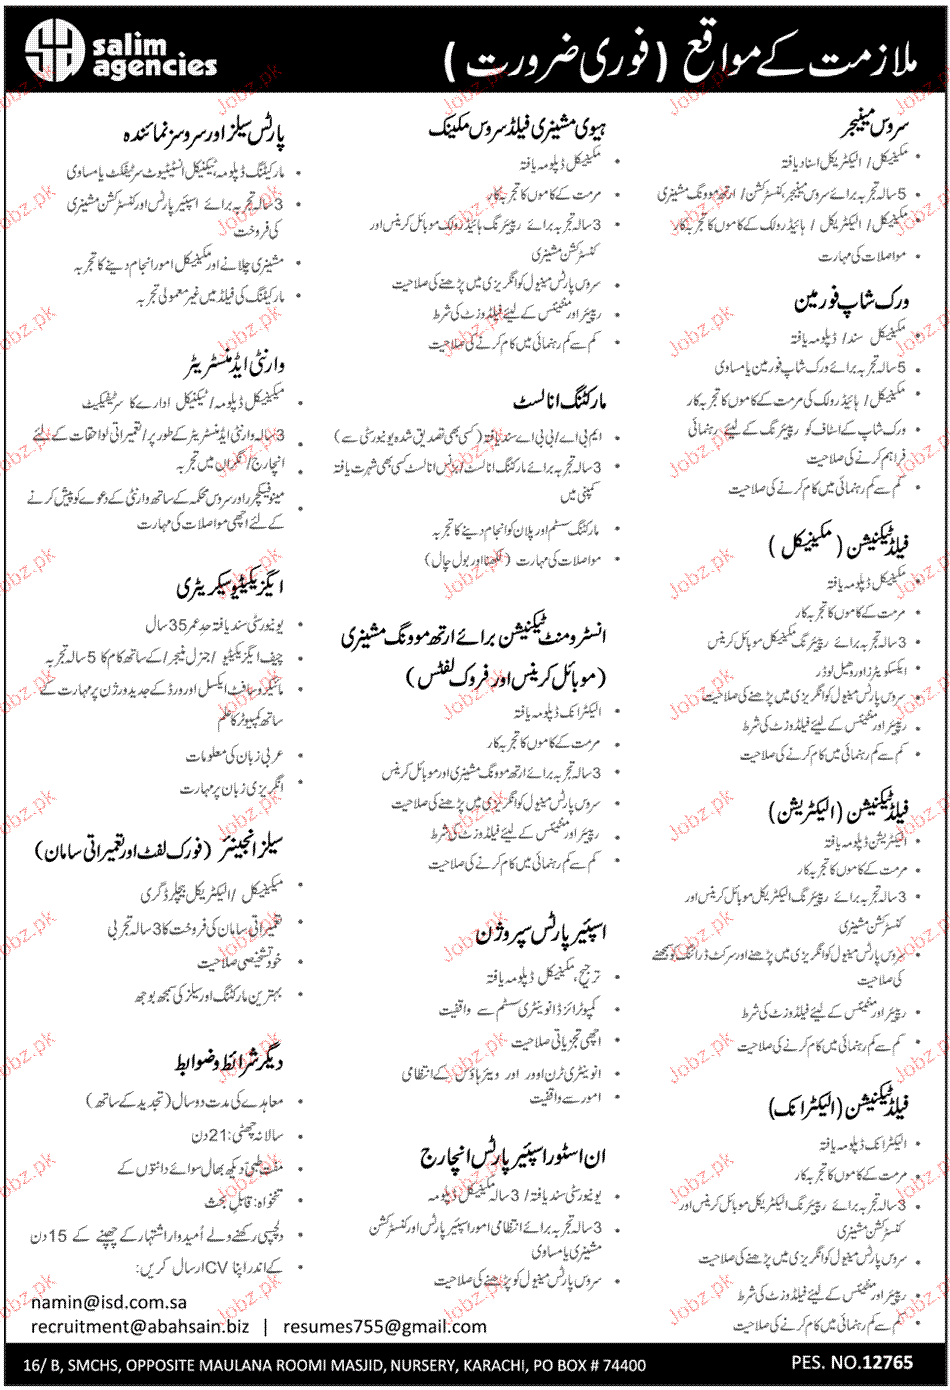 salim
agencies
ملازمت کے مواقع (فوری ضرورت)
سروس مینیجر
مکینیکل / الیکٹریکل اسناد یافتہ
5 سالہ تجربہ برائے سروس مینیجر، کنسٹرکشن / ارتھ موونگ مشینری
مکینیکل / الیکٹریکل / ہائیڈرولک کے کاموں کا تجربہ کار
مواصلات کی مہارت
ورک شاپ فورمین
مکینیکل سند / ڈپلومہ یافتہ
5 سالہ تجربہ برائے ورک شاپ فورمین یا مساوی
مکینیکل / ہائیڈرولک کی مرمت کے کاموں کا تجربہ کار
ورک شاپ کے اسٹاف کو ریپیئرنگ کے لیئے رہنمائی
فراہم کرنے کی صلاحیت
کم سے کم رہنمائی میں کام کرنے کی صلاحیت
فیلڈ ٹیکنیشن (مکینیکل)
مکینیکل ڈپلومہ یافتہ
مرمت کے کاموں کا تجربہ کار
3 سالہ تجربہ برائے ریپیئرنگ مکینیکل موبائل کرینس
ایکسکویٹرز اور وھیل لوڈر
سروس پارٹس مینیول کو انگریزی میں پڑھنے کی صلاحیت
ریپیئر اور منٹینس کے لیئے فیلڈ وزٹ کی شرط
کم سے کم رہنمائی میں کام کرنے کی صلاحیت
فیلڈ ٹیکنیشن (الیکٹریشن)
الیکٹریشن ڈپلومہ یافتہ
مرمت کے کاموں کا تجربہ کار
3 سالہ تجربہ برائے ریپیئرنگ الیکٹریکل موبائل کرینس اور
کنسٹرکشن مشینری
سروس پارٹس مینیول کو انگریزی میں پڑھنے اور سرکٹ ڈرائنگ کو سمجھنے
کی صلاحیت
ریپیئر اور منٹینس کے لیئے فیلڈ وزٹ کی شرط
کم سے کم رہنمائی میں کام کرنے کی صلاحیت
فیلڈ ٹیکنیشن (الیکٹرانک)
الیکٹرانک ڈپلومہ یافتہ
مرمت کے کاموں کا تجربہ کار
3 سالہ تجربہ برائے ریپیئرنگ الیکٹریکل موبائل کرینس اور
کنسٹرکشن مشینری
سروس پارٹس مینیول کو انگریزی میں پڑھنے کی صلاحیت
ریپیئر اور منٹینس کے لیئے فیلڈ وزٹ کی شرط
کم سے کم رہنمائی میں کام کرنے کی صلاحیت
ہیوی مشینری فیلڈ سروس مکینک
مکینیکل ڈپلومہ یافتہ
مرمت کے کاموں کا تجربہ کار
3 سالہ تجربہ برائے ریپیئرنگ ہائیڈرولک موبائل کرینس اور
کنسٹرکشن مشینری
سروس پارٹس مینیول کو انگریزی میں پڑھنے کی صلاحیت
ریپیئر اور منٹینس کے لیئے فیلڈ وزٹ کی شرط
کم سے کم رہنمائی میں کام کرنے کی صلاحیت
مارکٹنگ انالسٹ
ایم بی اے / بی بی اے سند یافتہ (کسی بھی تصدیق شدہ یونیورسٹی سے)
3 سالہ تجربہ برائے مارکٹنگ انالسٹ / بزنس انالسٹ کسی بھی شہرت یافتہ
کمپنی میں
مارکٹنگ سسٹم اور پلان کو انجام دینے کا تجربہ
مواصلات کی مہارت (لکھنا اور بول چال)
انسٹرومنٹ ٹیکنیشن برائے ارتھ موونگ مشینری
(موبائل کرینس اور فروک لفٹس)
الیکٹرانک ڈپلومہ یافتہ
مرمت کے کاموں کا تجربہ کار
3 سالہ تجربہ برائے ارتھ موونگ مشینری اور موبائل کرینس
سروس پارٹس مینیول کو انگریزی میں پڑھنے کی صلاحیت
ریپیئر اور منٹینس کے لیئے فیلڈ وزٹ کی شرط
کم سے کم رہنمائی میں کام کرنے کی صلاحیت
اسپئیر پارٹس سپروژن
ترجیح، مکینیکل ڈپلومہ یافتہ
کمپوٹرائزڈ انوینٹری سسٹم سے واقفیت
اچھی تجزیاتی صلاحیت
انوینٹری ٹرن اوور اور ویئر ہاؤس کے انتظامی
امور سے واقفیت
ان اسٹور اسپئیر پارٹس انچارج
یونیورسٹی سند یافتہ / 3 سالہ مکینیکل ڈپلومہ
3 سالہ تجربہ برائے انتظامی امور اسپئیر پارٹس اور کنسٹرکشن
مشینری یا مساوی
سروس پارٹس مینیول کو پڑھنے کی صلاحیت
پارٹس سیلز اور سروسز نمائندہ
مارکٹنگ ڈپلومہ، ٹیکنیکل انسٹیٹیوٹ سرٹیفکٹ یا مساوی
3 سالہ تجربہ برائے اسپئیر پارٹس اور کنسٹرکشن مشینری
کی فروخت
مشینری چلانے اور مکینیکل امور انجام دینے کا تجربہ
مارکٹنگ کی فیلڈ میں غیر معمولی تجربہ
وارنٹی ایڈمنسٹریٹر
میکینیکل ڈپلومہ / ٹیکنیکل ادارے کا سرٹیفیکیٹ
3 سالہ وارنٹی ایڈمنسٹریٹر کے طور پر / تعمیراتی لواحقات کے لئے
انچارج / نگران میں تجربہ
مینوفیکچرر اور سروس محکمہ کے ساتھ وارنٹی کے دعوے کو پیش کرنے
کے لئے اچھی مواصلات کی مہارت
ایگزیکیٹیو سیکریٹری
یونیورسٹی سند یافتہ حدِ عمر 35 سال
چیف ایگزیکیٹیو / جنرل منیجر / کے ساتھ کام کا 5 سالہ تجربہ
مائیکروسافٹ ایکسل اور ورڈ کے جدید ورژن پر مہارت کے
ساتھ کمپیوٹر کا علم
عربی زبان کی معلومات
انگریزی زبان پر مہارت
سیلز انجینئر (فورک لفٹ اور تعمیراتی سامان)
میکینیکل / الیکٹریکل بیچلر ڈگری
تعمیراتی سامان کی فروخت کا 3 سالہ تجربی
خود تشخیصی صلاحیت
بہترین مارکٹنگ اور سیلز کی سمجھ بوجھ
دیگر شرائط و ضوابط
معاہدے کی مدت دو سال (تجدید کے ساتھ)
سالانہ چھٹی: 21 دن
مفت طبی دیکھ بھال سوائے دانتوں کے
تنخواہ: قابلِ بحث
دلچسپی رکھنے والے اُمیدوار اشتہار کے چھپنے کے 15 دن
کے اندر اپنا CV ارسال کریں:
namin@isd.com.sa
recruitment@abahsain.biz | resumes755@gmail.com
16/ B, SMCHS, OPPOSITE MAULANA ROOMI MASJID, NURSERY, KARACHI, PO BOX # 74400
PES. NO.12765
Jobz.pk